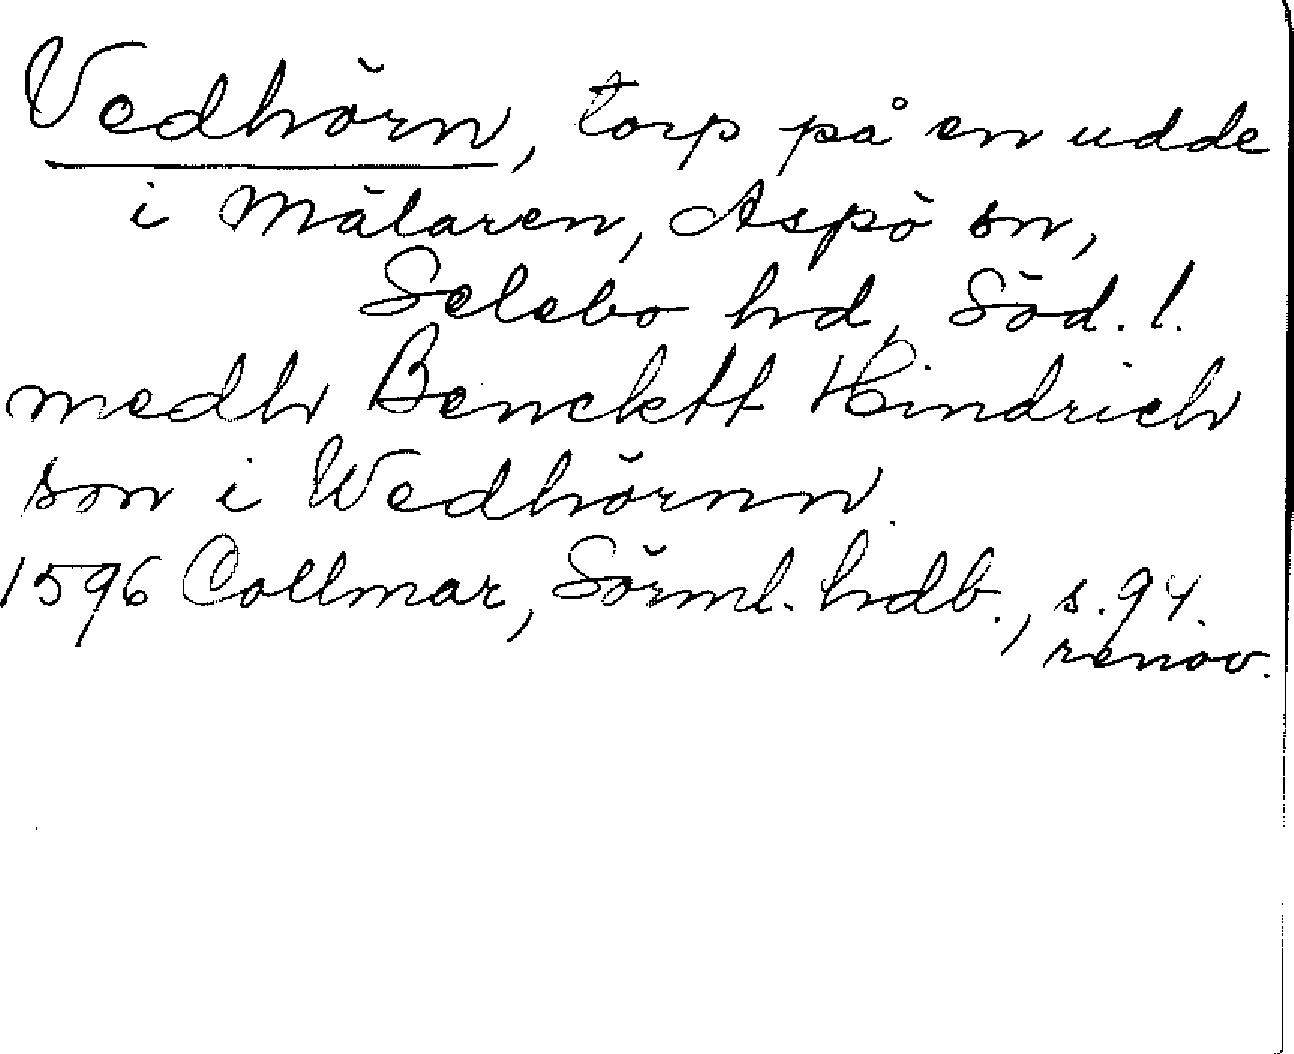 Vedhörn, torp på en udde
i Mälaren, Aspö sn,
Selebo hd, Söd. l.
medh Bencktt Hindrich
son i Wedhörnn.
1596 Collmar, Sörml. hdb., s. 94.
renov.